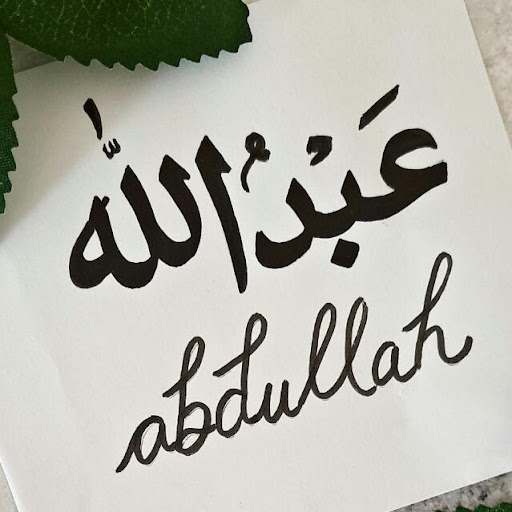 عَبْدُاللّٰه
abdullah